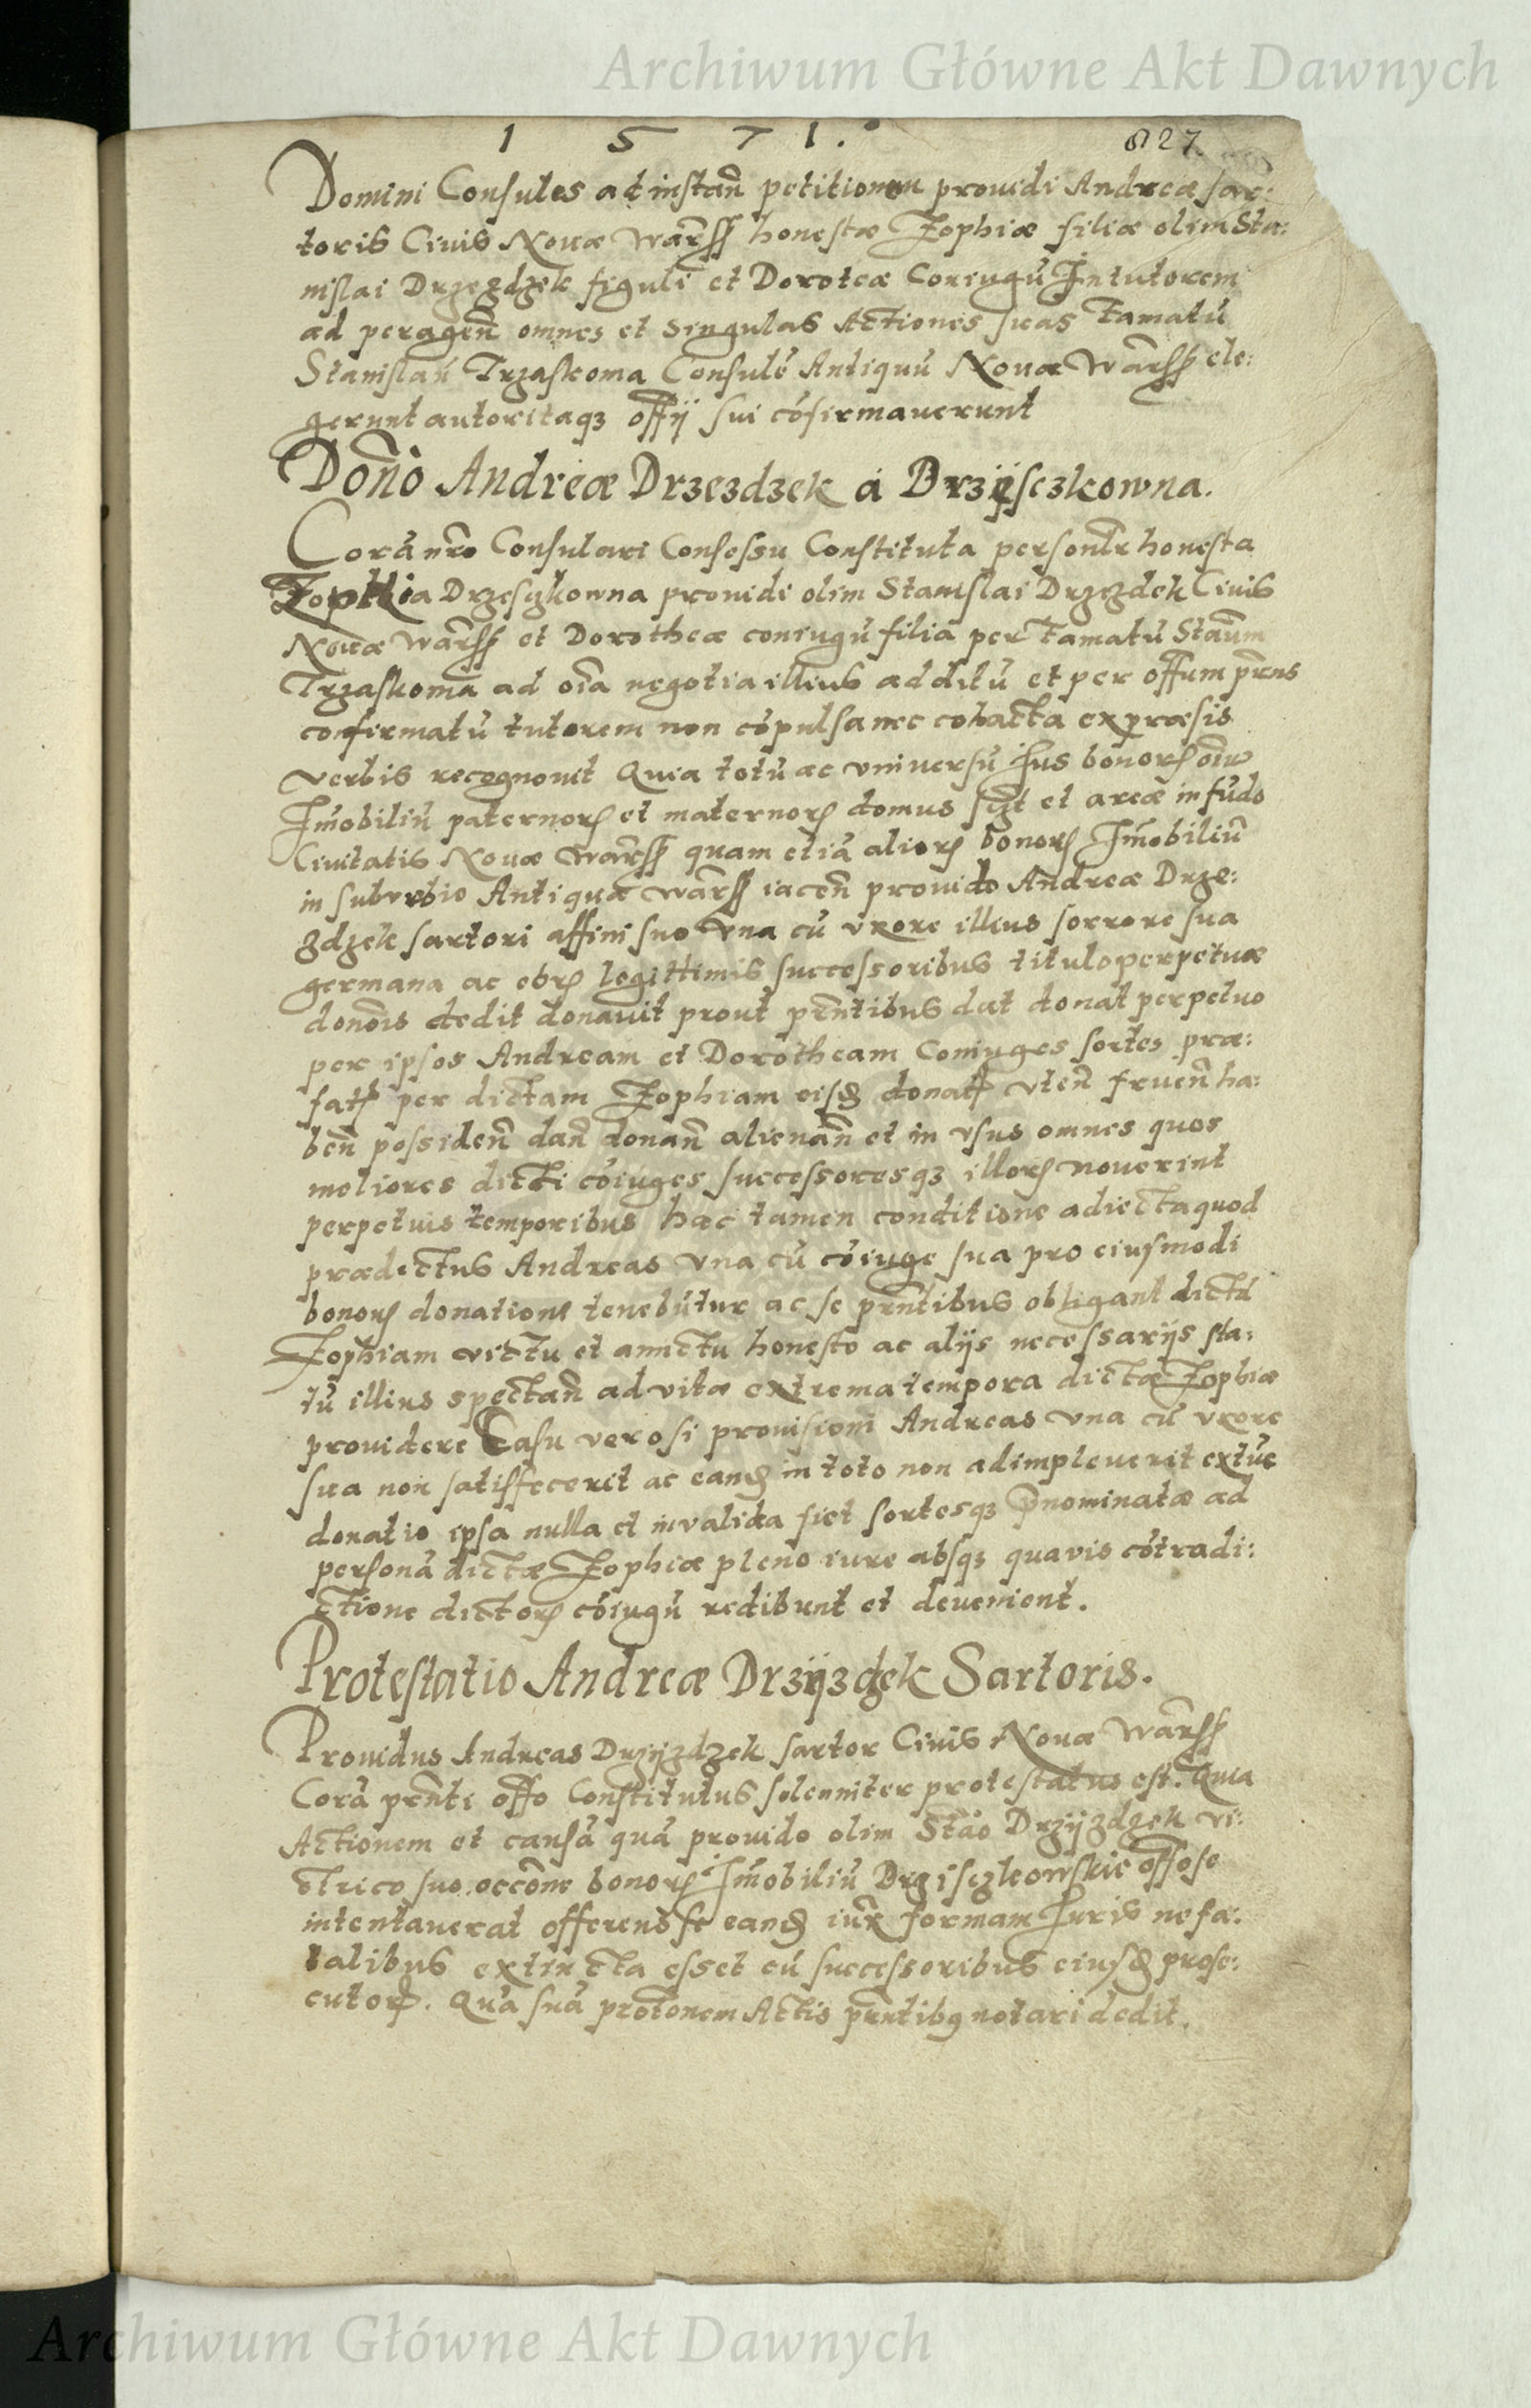 Archiwum Główne Akt Dawnych
1 5 7 1. 827
Domini Consules ad instan̄ petitionem prouidi Andreæ sar:
toris Ciuis Nouæ Warss honestæ Zophiæ filiæ olim Sta:
nislai Drzezdzek figuli et Doroteæ Coniugū In tutorem
ad peragen̄ omnes et singulas Actiones suas famatū
Stanislaū Trzaskoma Consulē Antiquū Nouæ Warss ele:
gerunt autoritaqз offij sui cōfirmauerunt
Donō Andreæ Drzezdzek á Brzijsczkowna.
Corā nr̄o Consulari Consessu Constituta personlr̄ honesta
Zophia Drzesczkowna prouidi olim Stanislai Drzezdek Ciuis
Nouæ Warss et Dorotheæ coniugū filia per famatū Staūm
Trzaskoma ad oīa negotia illius additū et per offum pr̄ns
confirmatū tutorem non cōpulsa nec cohacta expræsis
verbis recognouit Quia totū ac vniuersū Ius bonorꝝ oīu
Im̄obiliū paternorꝝ et maternorꝝ domus sc̄ʒt et areæ in fūdo
Ciuitatis Nouæ Warss quam etiā aliorꝝ bonorꝝ Im̄obiliū
in suburbio Antiquæ Warss iacen̄ prouido Andreæ Drze:
zdzek sartori affini suo vna cū vxore illius sorrore sua
germana ac eorꝝ legittimis successoribus titulo perpetuæ
donōis dedit donauit prout pr̄ntibus dat donat perpetuo
per ipsos Andream et Dorotheam Coniuges sortes præ:
fatꝭ per dictam Zophiam eisꝺ donatꝭ vten̄ fruen̄ ha:
ben̄ possiden̄ dan̄ donan̄ alienan̄ et in vsus omnes quos
meliores dicti cōiuges successoresqз illorꝝ nouerint
perpetuis temporibus hac tamen conditione adiecta quod
prædictus Andreas vna cū cōiuge sua pro eiusmodi
bonorꝝ donatione tenebūtur ac se pr̄ntibus obligant dictā
Zophiam victu et amictu honesto ac alijs necessarijs sta:
tū illius spectan̄ ad vitæ extrema tempora dictæ Zophiæ
prouidere Casu vero si prouisioni Andreas vna cū vxore
sua non satisfecerit ac eanꝺ in toto non adimpleuerit extūc
donatio ipsa nulla et inualida fiet sortesqз p̄nominatæ ad
personā dictæ Zophiæ pleno iure absqз quauis cōtradi:
ctione dictorꝝ cōiugū redibunt et deuenient.
Protestatio Andreæ Drzijzdzek Sartoris.
Prouidus Andreas Drzijzdzek sartor Ciuis Nouæ Warss
Corā pr̄nti offo Constitutus solenniter protestatus est. Quia
Actionem et causā quā prouido olim Stāo Drzijzdzek vi:
ctrico suo occōne bonorꝝ Im̄obiliū Drzisczkowskie offose
intentauerat offerens se eanꝺ iux formam Iuris ne fa:
talibus extincta esset cū successoribus eiusꝺ prose:
cutorꝭ. Quā suā protōnem Actis pr̄ntibꝰ notari dedit.
Archiwum Główne Akt Dawnych